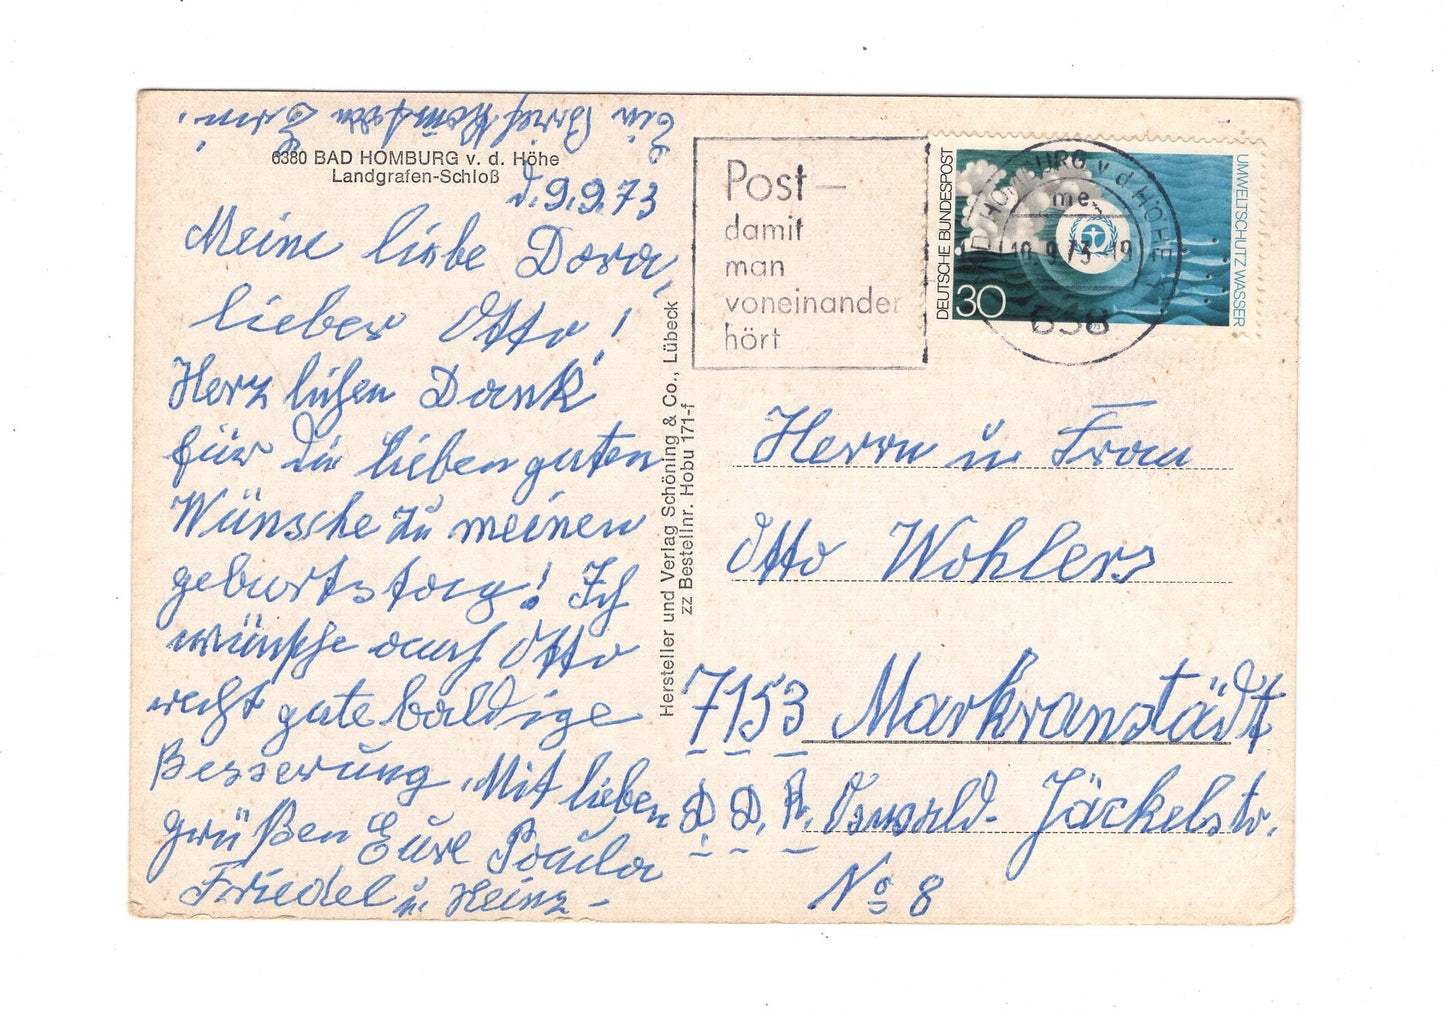 Ein Brief kommt
6380 BAD HOMBURG v. d. Höhe
Landgrafen-Schloß
d. 9. 9. 73
Meine liebe Dora,
lieber Otto!
Herzlichen Dank
für die lieben guten
Wünsche zu meinen
geburtstag! Ich
wünsche auch Otto
recht gute baldige
Besserung. Mit lieben
grüßen Eure Paula
Friedel u Heinz -
Hersteller und Verlag Schöning & Co., Lübeck
zz Bestellnr. Hobu 171-f
Post –
damit
man
voneinander
hört
DEUTSCHE BUNDESPOST
30
UMWELTSCHUTZ WASSER
BAD HOMBURG v d HÖHE
me
10.9.73-19
638
Herrn u Frau
Otto Wohlers
7153 Markranstädt
D. D. R. Oswald-Jäckelstr.
No 8